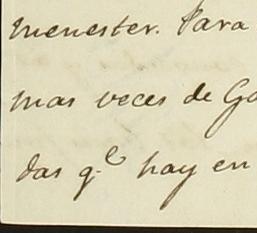 menester. Para
mas veces de Go
das q.e hay en